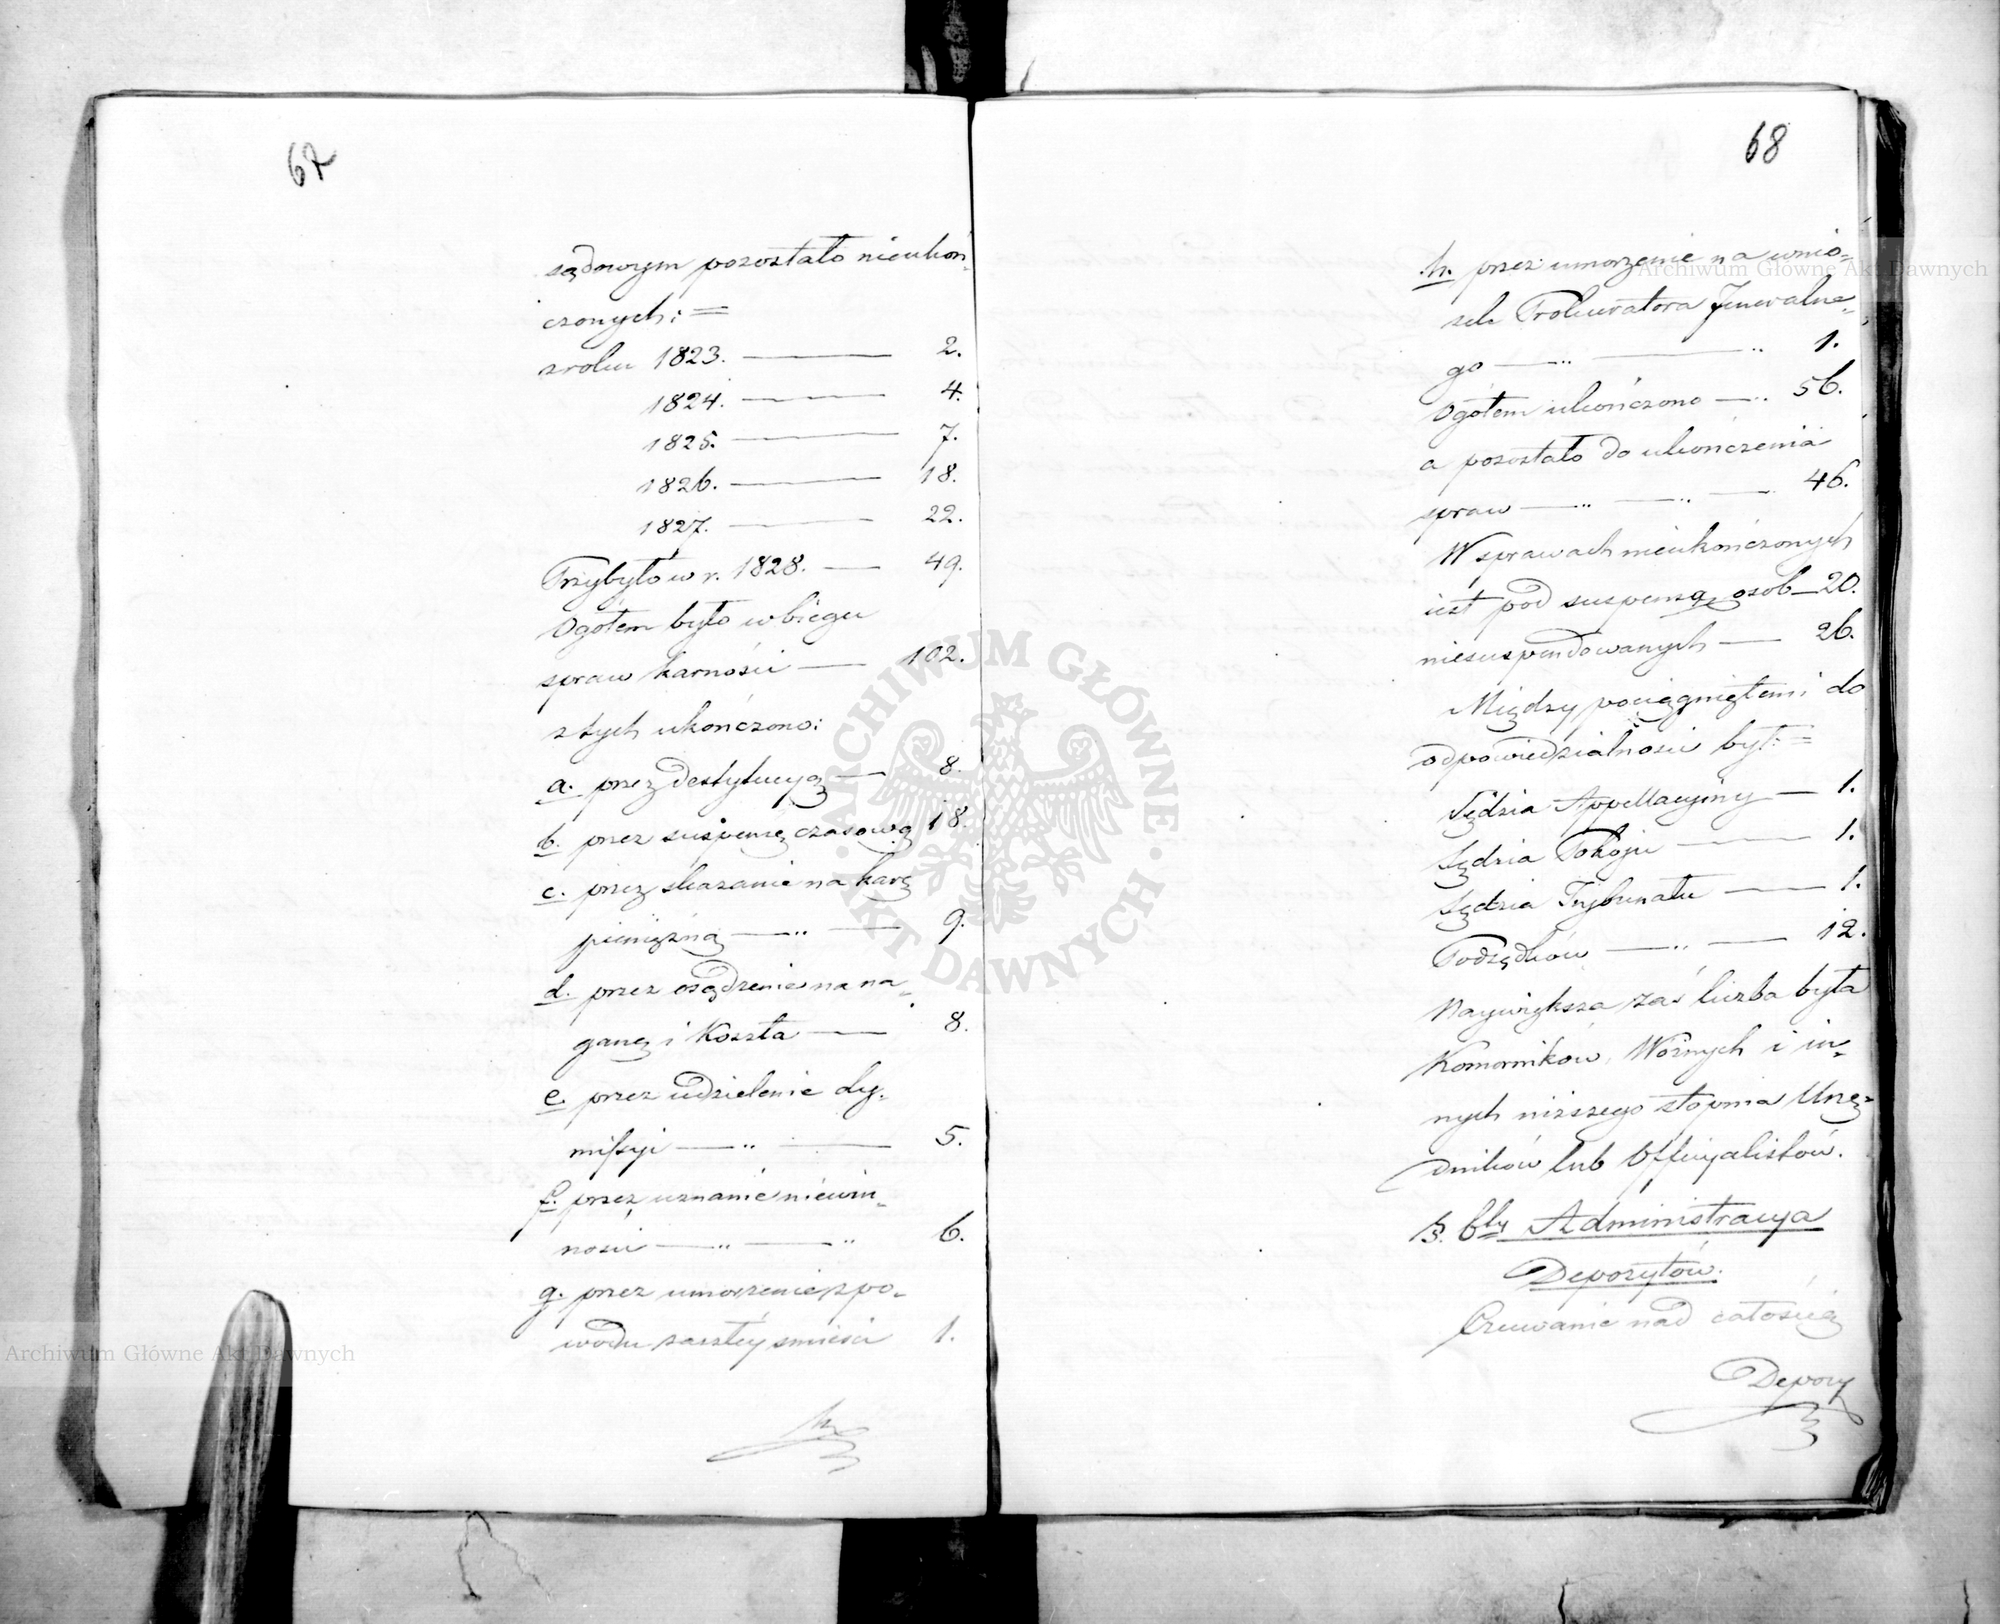 67
sądowym pozostało nieukoń-
czonych: =
z roku 1823. — 2.
1824. — 4.
1825. — 7.
1826. — 18.
1827. — 22.
Przybyło w r. 1828. — 49.
Ogółem było w biegu
spraw karności — 102.
z tych ukończono:
a. przez destytucyą — 8.
b. przez suspensę czasową 18.
c. przez skazanie na karę
pieniężną — „ — 9.
d. przez osądzenie na na-
ganę i Koszta — 8.
e. przez udzielenie dy-
missyi — „ — 5.
f. przez uznanie niewin-
ności — „ — „ 6.
g. przez umorzenie z po-
wodu zaszłey śmierci 1.
h.
68
h. przez umorzenie na wnio-
sek Prokuratora Jeneralne-
go — „ — „ 1.
Ogółem ukończono — „ 56.
a pozostało do ukończenia
spraw — „ — „ — 46.
W sprawach nieukończonych
iest pod suspensą osob — 20.
niesuspendowanych — 26.
Między pociągniętemi do
odpowiedzialności był: =
Sędzia Appellacyiny — 1.
Sędzia Pokoju — 1.
Sędzia Trybunału — 1.
Podsędków — „ — 12.
Naywiększa zaś liczba była
Komorników, Woźnych i in-
nych niższego stopnia Urzę-
dników lub Officyalistów.
§. 6ty Administracya
Depozytów.
Czuwanie nad całością
Depozy
Archiwum Główne Akt Dawnych
Archiwum Główne Akt Dawnych
· ARCHIWUM GŁÓWNE · AKT DAWNYCH